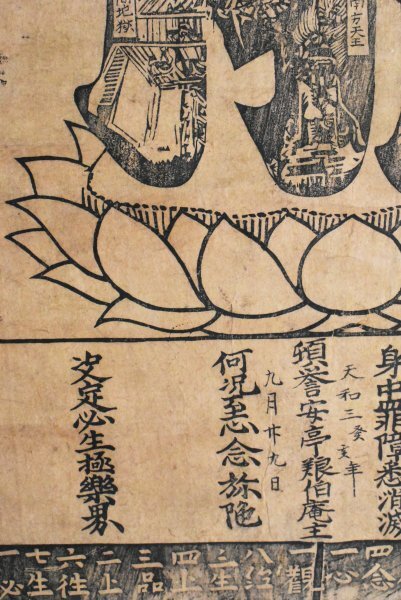 南方天主
地獄
身中罪障悉消滅
天和三癸亥年
頌誉安亭粮伯庵主
九月廿九日
何況至心念弥陀
决定必生極樂界
四念
一心
一觀
八
三生
四上
三品
二上
六往
七生
一必